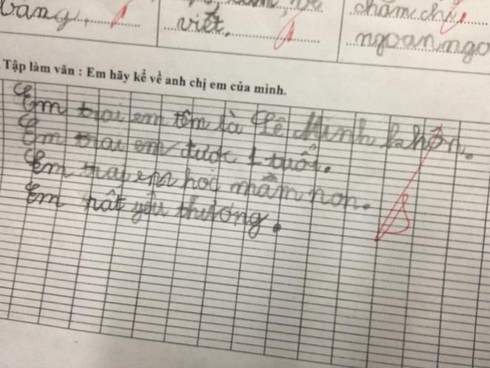 trang, viết, chăm chỉ,
ngoan ngo
Tập làm văn : Em hãy kể về anh chị em của mình.
Em trai em tên là Lê Minh Khôn.
Em trai em được 1 tuổi.
Em trai em học mần non.
Em rất yêu thương.